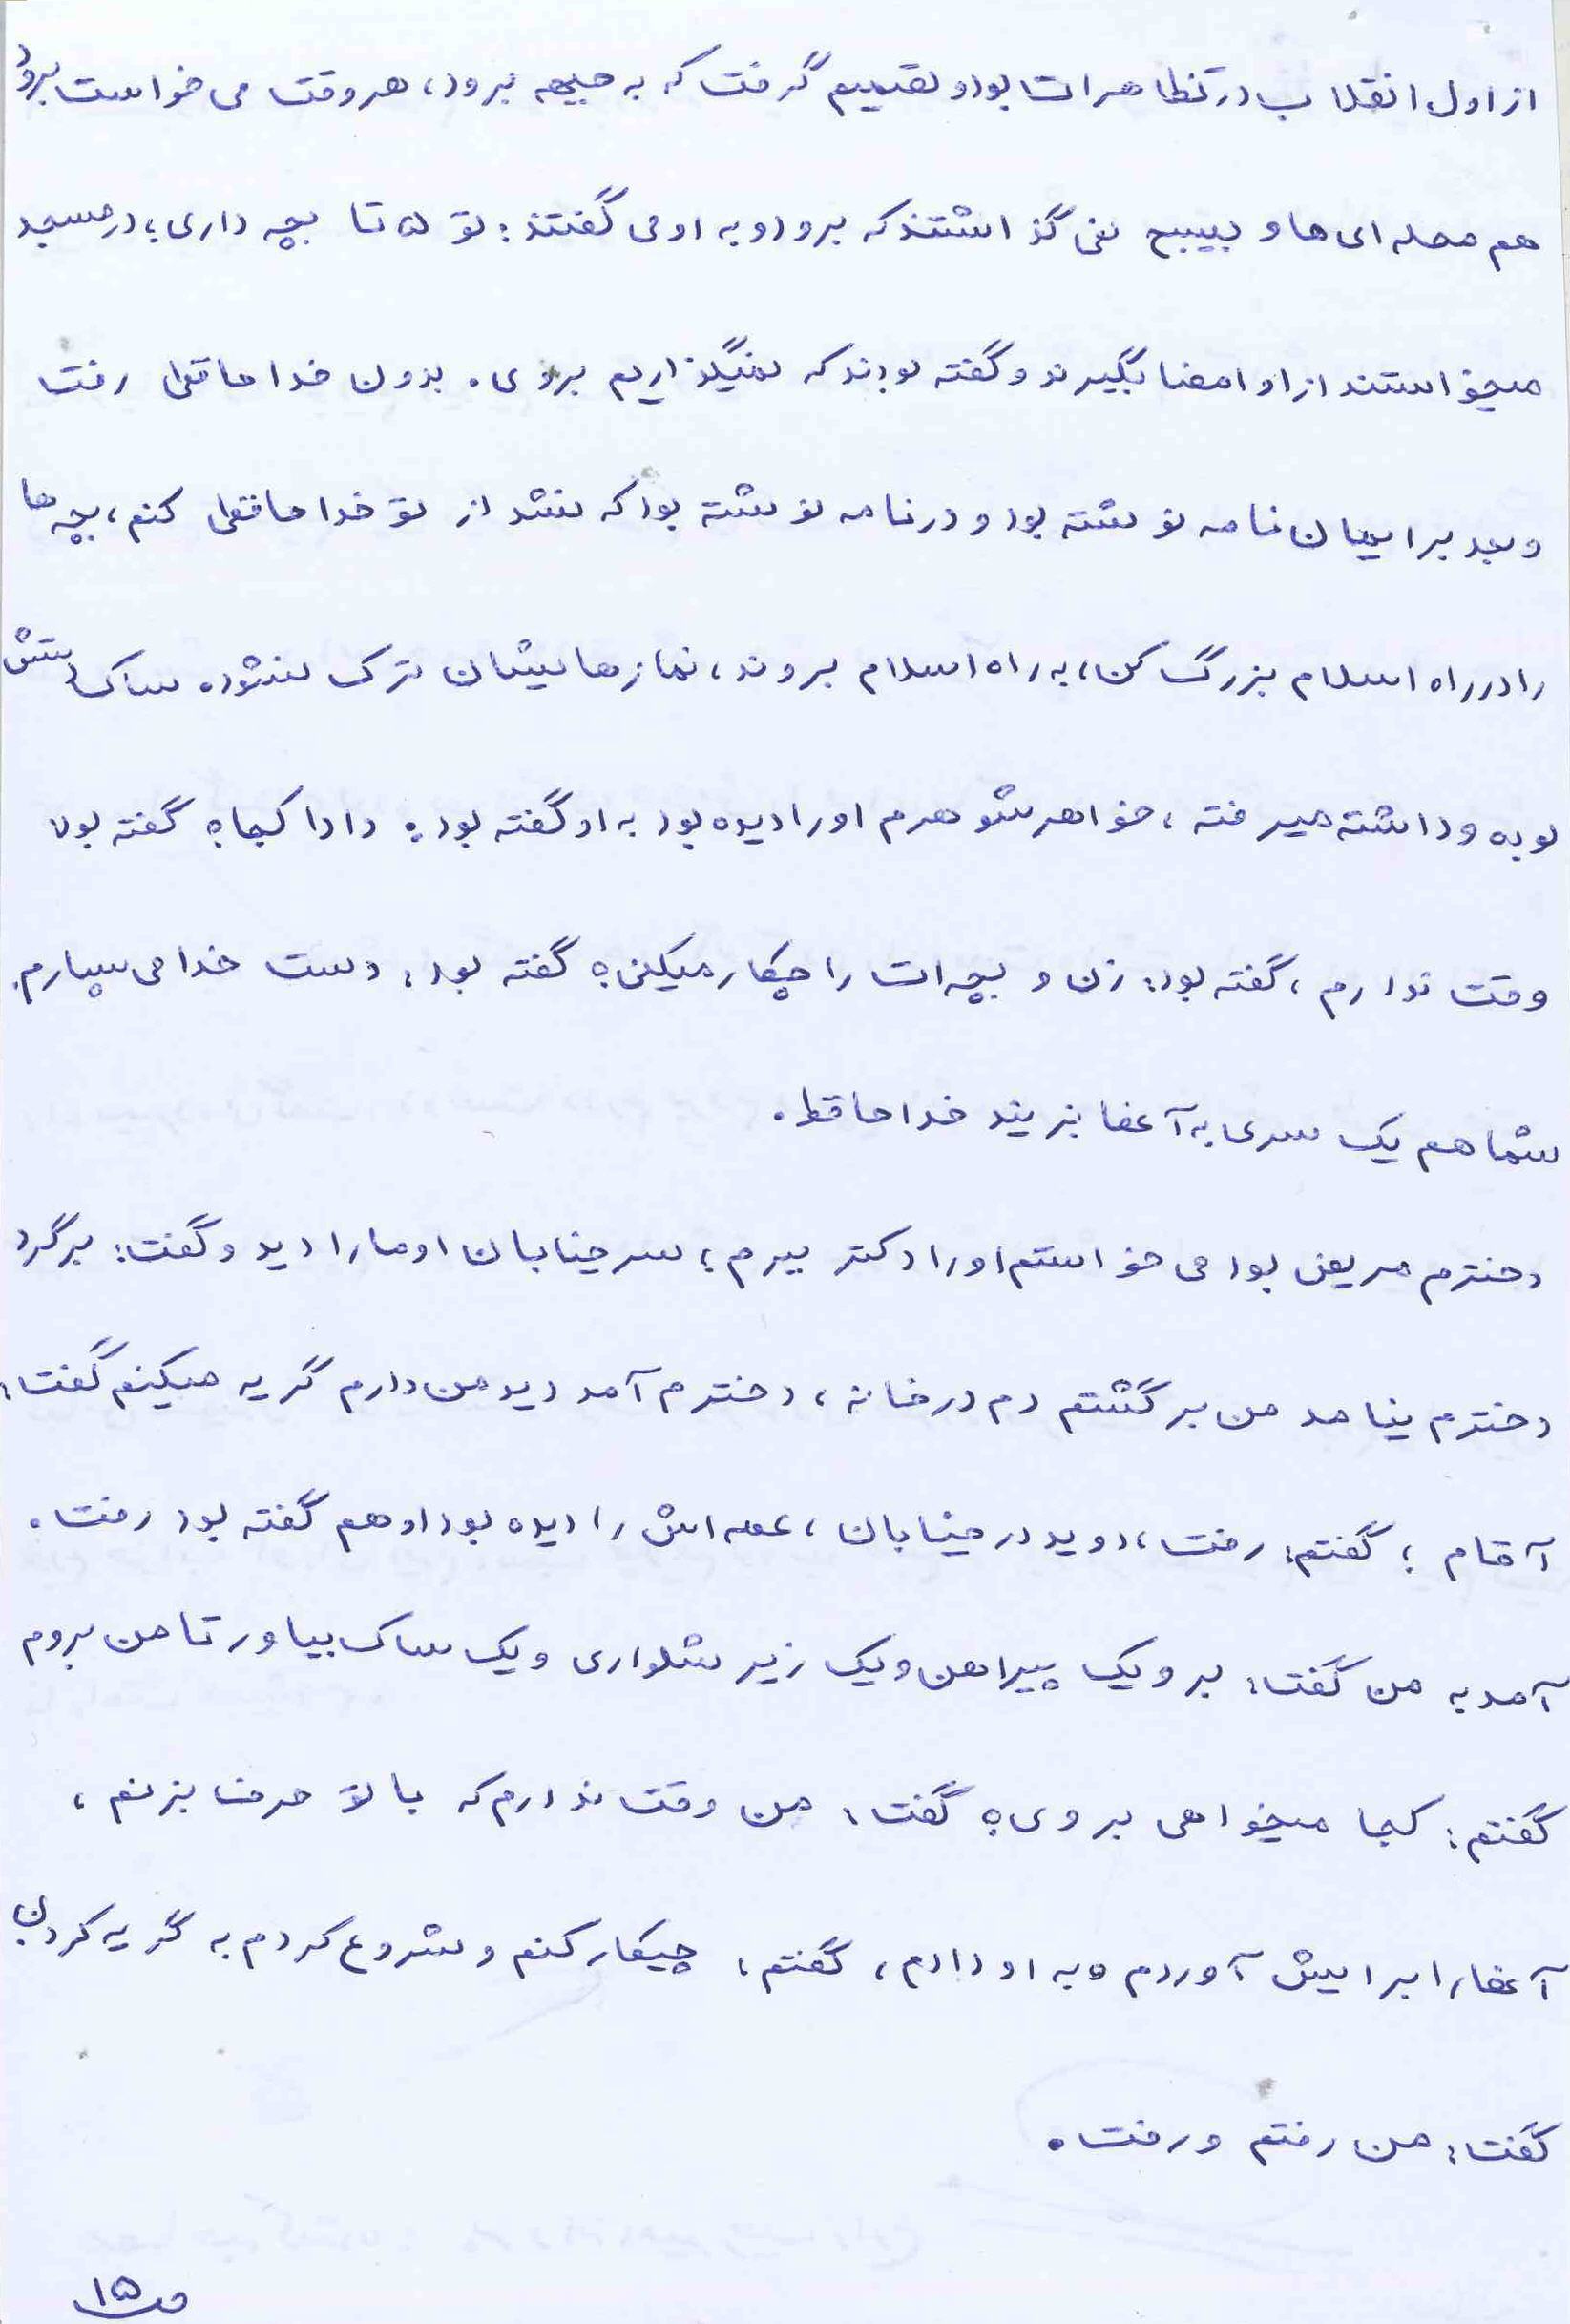 از اول انقلاب در تظاهرات بود و تصمیم گرفت که به جبهه برود، هر وقت می خواست برود
هم محله ای ها و بسیج نمی گذاشتند که برود و به او می گفتند: تو ۵ تا بچه داری؛ در مسجد
میخواستند از او امضا بگیرند و گفته بودند که نمیگذاریم بروی. بدون خداحافظی رفت
و بعد برایمان نامه نوشته بود و در نامه نوشته بود که نشد از تو خداحافظی کنم، بچه ها
را در راه اسلام بزرگ کن، به راه اسلام بروند، نمازهایشان ترک نشود. ساک دستش
بوده و داشته میرفته، خواهر شوهرم او را دیده بود به او گفته بود: دادا کجا؟ گفته بود
وقت ندارم، گفته بود: زن و بچه ات را چکار میکنی؟ گفته بود: دست خدا می سپارم.
شما هم یک سری به آنها بزنید خداحافظ.
دخترم مریض بود می خواستم او را دکتر ببرم؛ سر خیابان او ما را دید و گفت: برگرد
دخترم نیامد من برگشتم دم در خانه، دخترم آمد دید من دارم گریه میکنم گفت:
آقام؛ گفتم: رفت، دوید در خیابان، عمه اش را دیده بود او هم گفته بود رفت.
آمد به من گفت: برو یک پیراهن و یک زیر شلواری و یک ساک بیاور تا من بروم
گفتم: کجا میخواهی بروی؟ گفت: من وقت ندارم که با تو حرف بزنم،
آنها را برایش آوردم و به او دادم، گفتم: چیکار کنم و شروع کردم به گریه کردن
گفت: من رفتم و رفت.
ص ۱۵